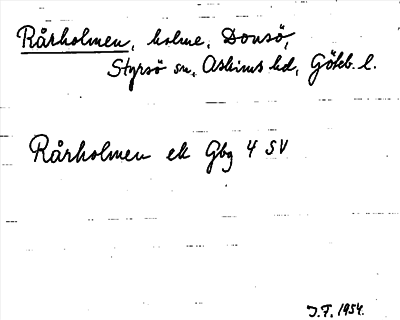 Rårholmen, holme, Donsö,
Styrsö sn, Askims hd, Göteb. l.
Rårholmen ek Gbg 4 SV
J.F. 1954.